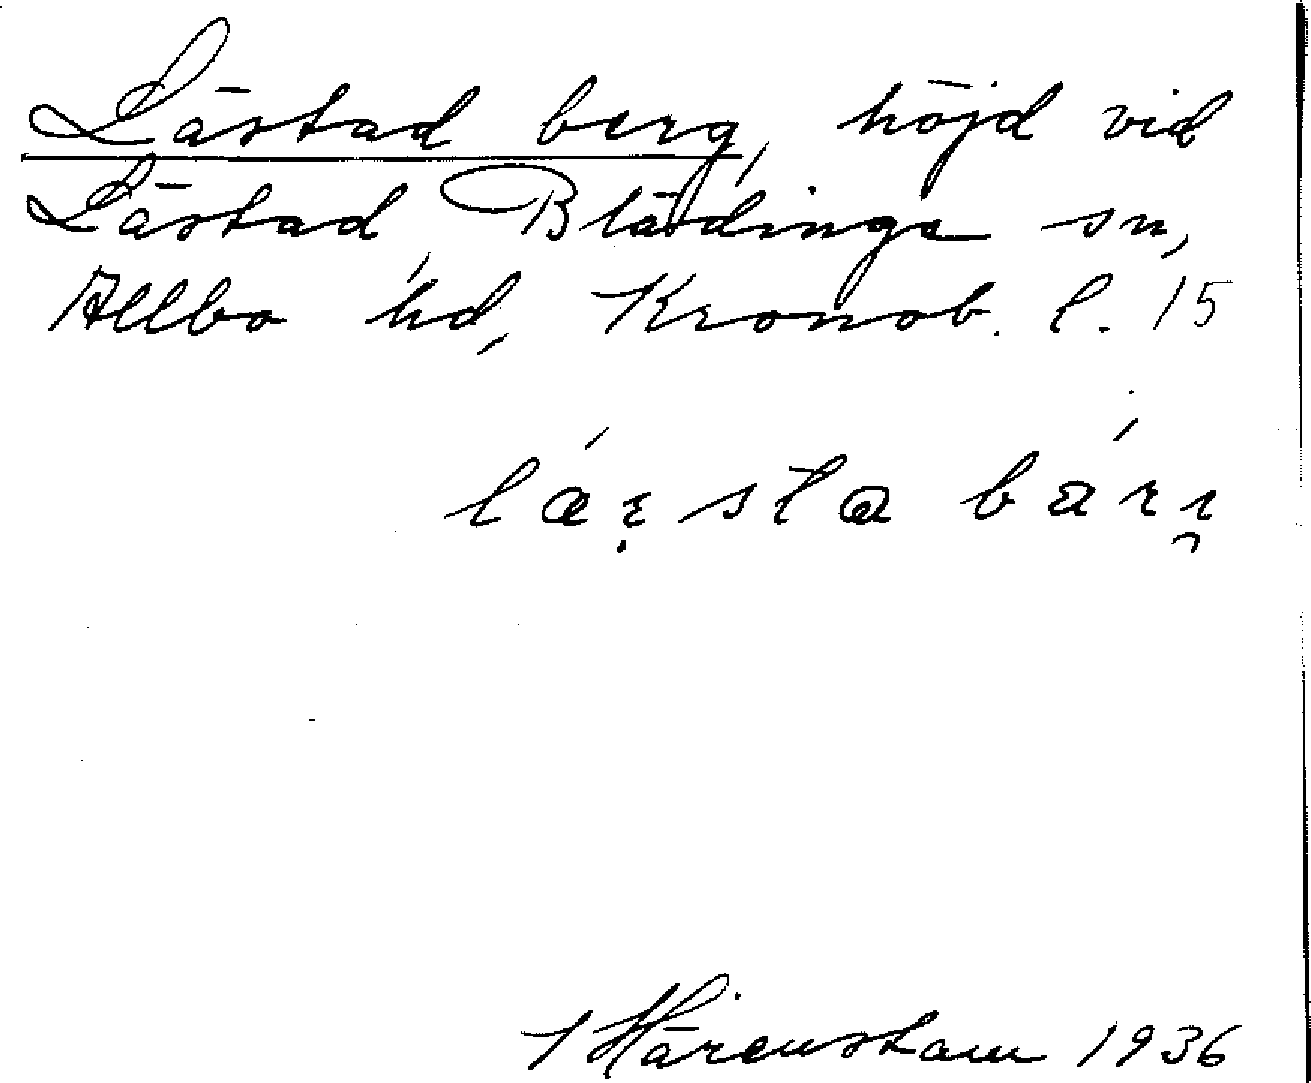 Lästad berg, höjd vid
Lästad, Blädinga sn,
Allbo hd, Kronob. l. 15
Härenstam 1936